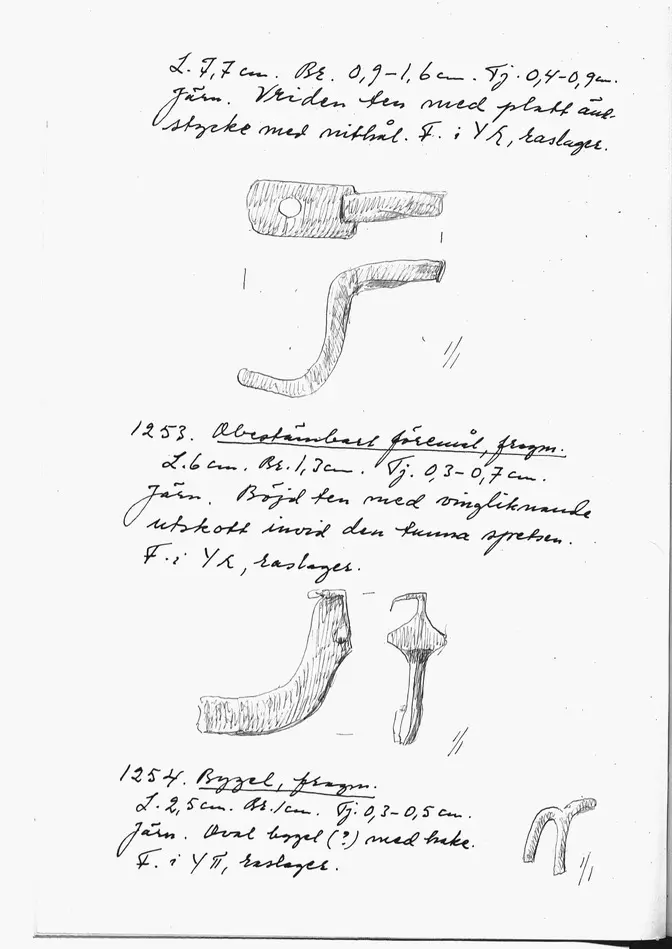 L. 7,7 cm. Br. 0,9–1,6 cm. Tj. 0,4–0,9 cm.
Järn. Vriden ten med platt änd-
stycke med nithål. F. i Y K, raslager.
1/1
1253. Obestämbart föremål, fragm.
L. 6 cm. Br. 1,3 cm. Tj. 0,3–0,7 cm.
Järn. Böjd ten med vingliknande
utskott invid den tunna spetsen.
F. i Y K, raslager.
1/1
1254. Bygel, fragm.
L. 2,5 cm. Br. 1 cm. Tj. 0,3–0,5 cm.
Järn. Oval bygel (?) med hake.
F. i Y π, raslager.
1/1